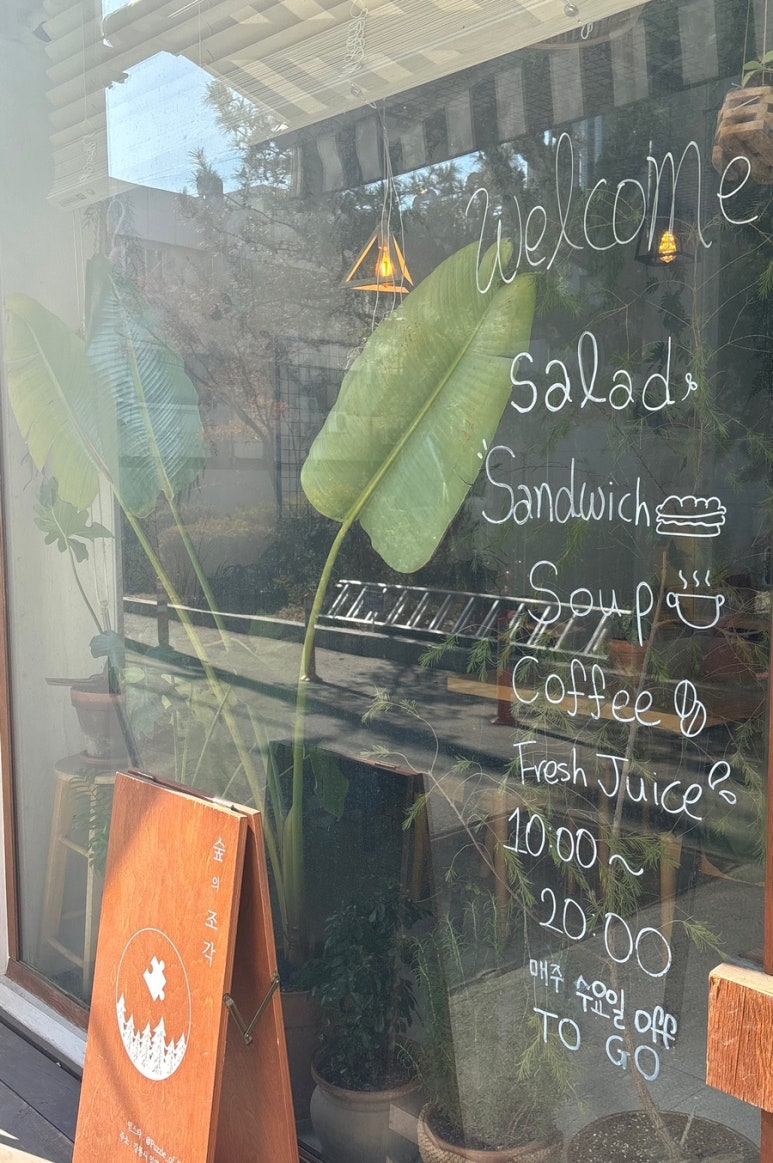 welcome
salad
Sandwich
Soup
Coffee
Fresh Juice
10:00 ~
20:00
매주 수요일 off
TO GO
숲의 조각